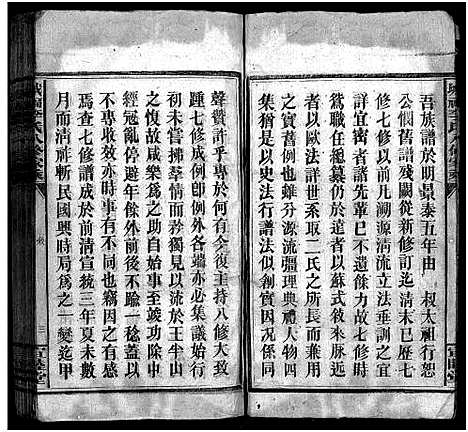 吾族譜於明景泰五年由　叔太祖行恕
公憫舊譜殘闕從新修訂迄清末已歷七
修以前凡溯源清流立法垂訓之宜
詳宜密者譜先輩已不遺餘力故七修時
鴛職任總纂仍於遠者以蘇式敘來脉近
者以歐法詳世系取二氏之所長而兼用
之例也雖分源流疆理典禮人物四
集猶是以史法行譜法似創實因夫何
聲贊許乎專於何有今之復主持八修大致
踵七修成例即例外各端亦必集議始行
初未嘗拂羣情而矜獨見以流於王半山
之愎故咸樂爲之助自始事至竣功除中
經冠亂停避年餘外前後不踰一載者其
收效亦有不同也竊因之有感
焉查七修譜成於前清宣統三年夏未數
月而清祚斬民國興時局爲之一變迄甲